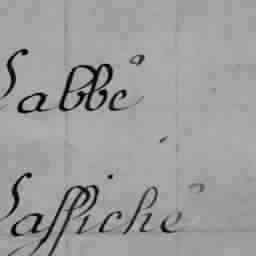 Labbé
Laffiché